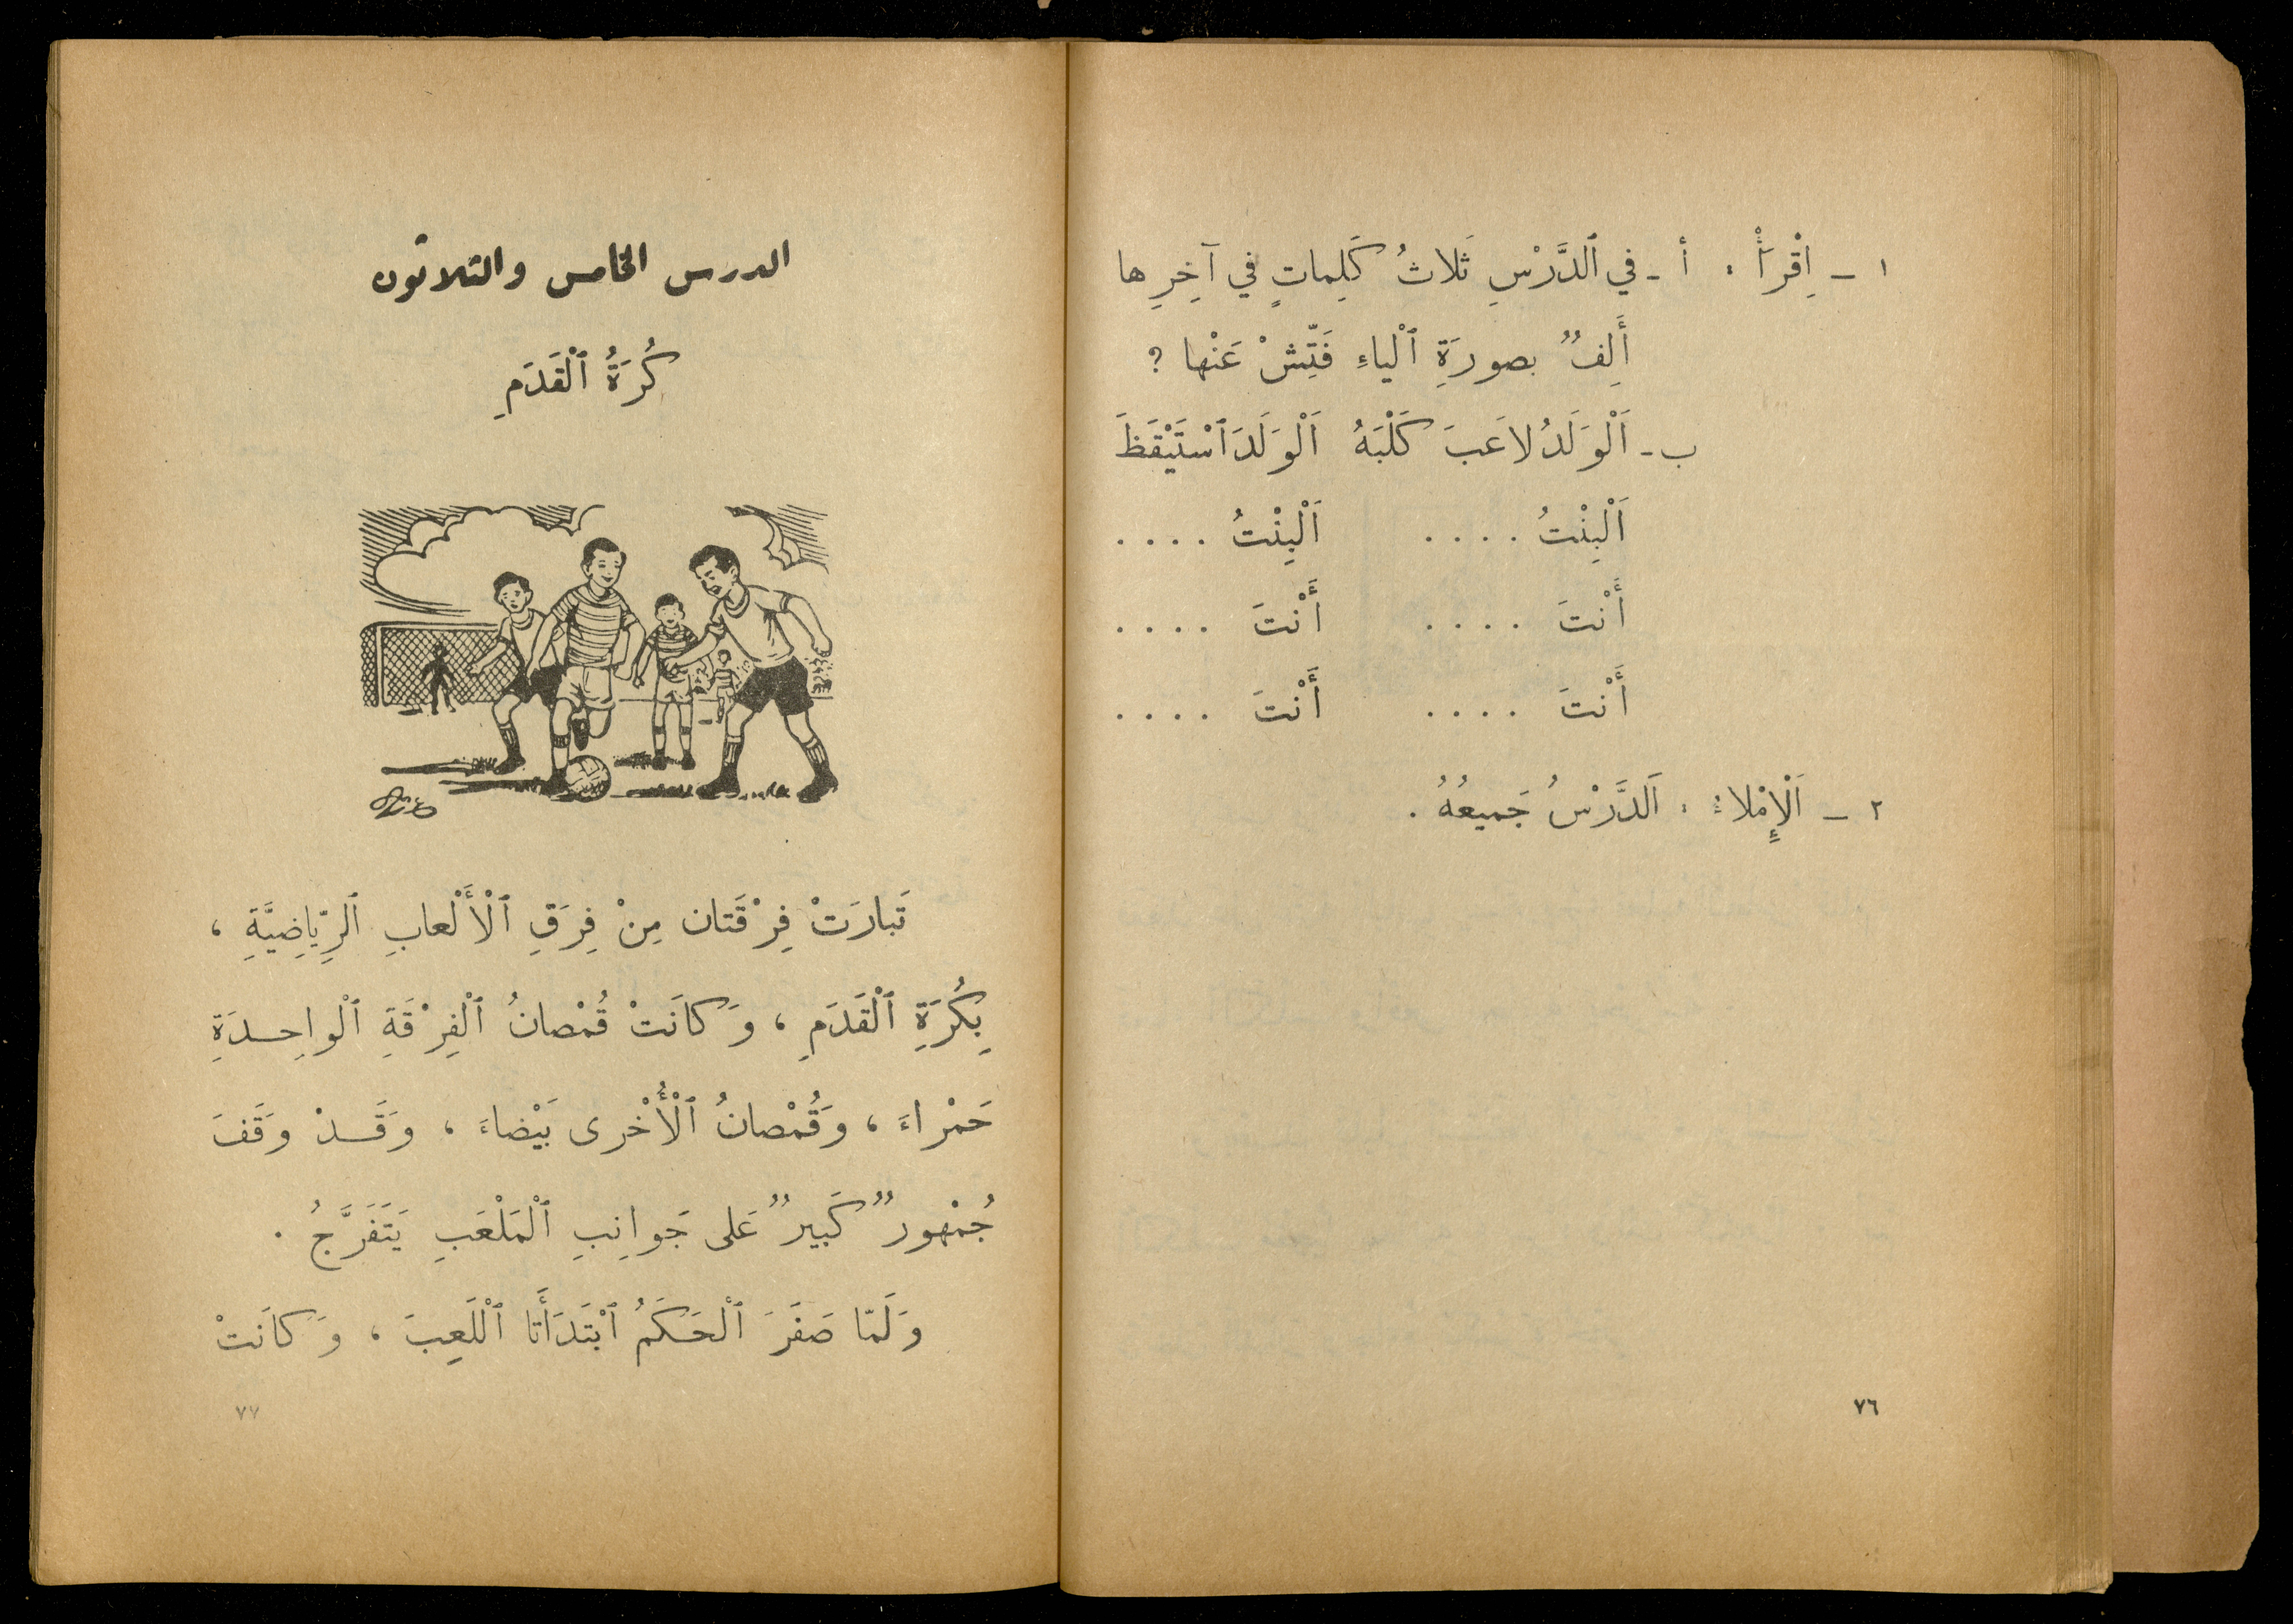 ١ ــ اِقْرَأْ : أ ـ في ٱلدَّرْسِ ثَلاثُ كَلِماتٍ في آخِرِها
أَلِفٌ بصورَةِ ٱلْياءِ فَتِّشْ عَنْها ؟
ب ـ اَلْوَلَدُ لاعَبَ كَلْبَهُ اَلْوَلَدَ ٱسْتَيْقَظَ
اَلْبِنْتُ .... اَلْبِنْتُ ....
أَنْتَ .... أَنْتَ ....
أَنْتَ .... أَنْتَ ....
٢ ــ اَلْإِمْلاءُ : اَلدَّرْسُ جَميعُهُ .
٧٦
الدرس الخامس والثلاثون
كُرَةُ ٱلْقَدَمِ
تَبارَتْ فِرْقَتان مِنْ فِرَقِ ٱلْأَلْعابِ ٱلرِّياضِيَّةِ ،
بِكُرَةِ ٱلْقَدَمِ ، وَكانَتْ قُمْصانُ ٱلْفِرْقَةِ ٱلْواحِدَةِ
حَمْراءَ ، وَقُمْصانُ ٱلْأُخْرى بَيْضاءَ ، وَقَدْ وَقَفَ
جُمْهورٌ كَبيرٌ عَلى جَوانِبِ ٱلْمَلْعَبِ يَتَفَرَّجُ .
وَلَمّا صَفَرَ ٱلْحَكَمُ ٱبْتَدَأَتا ٱلْلَعِبَ ، وَكانَتْ
٧٧